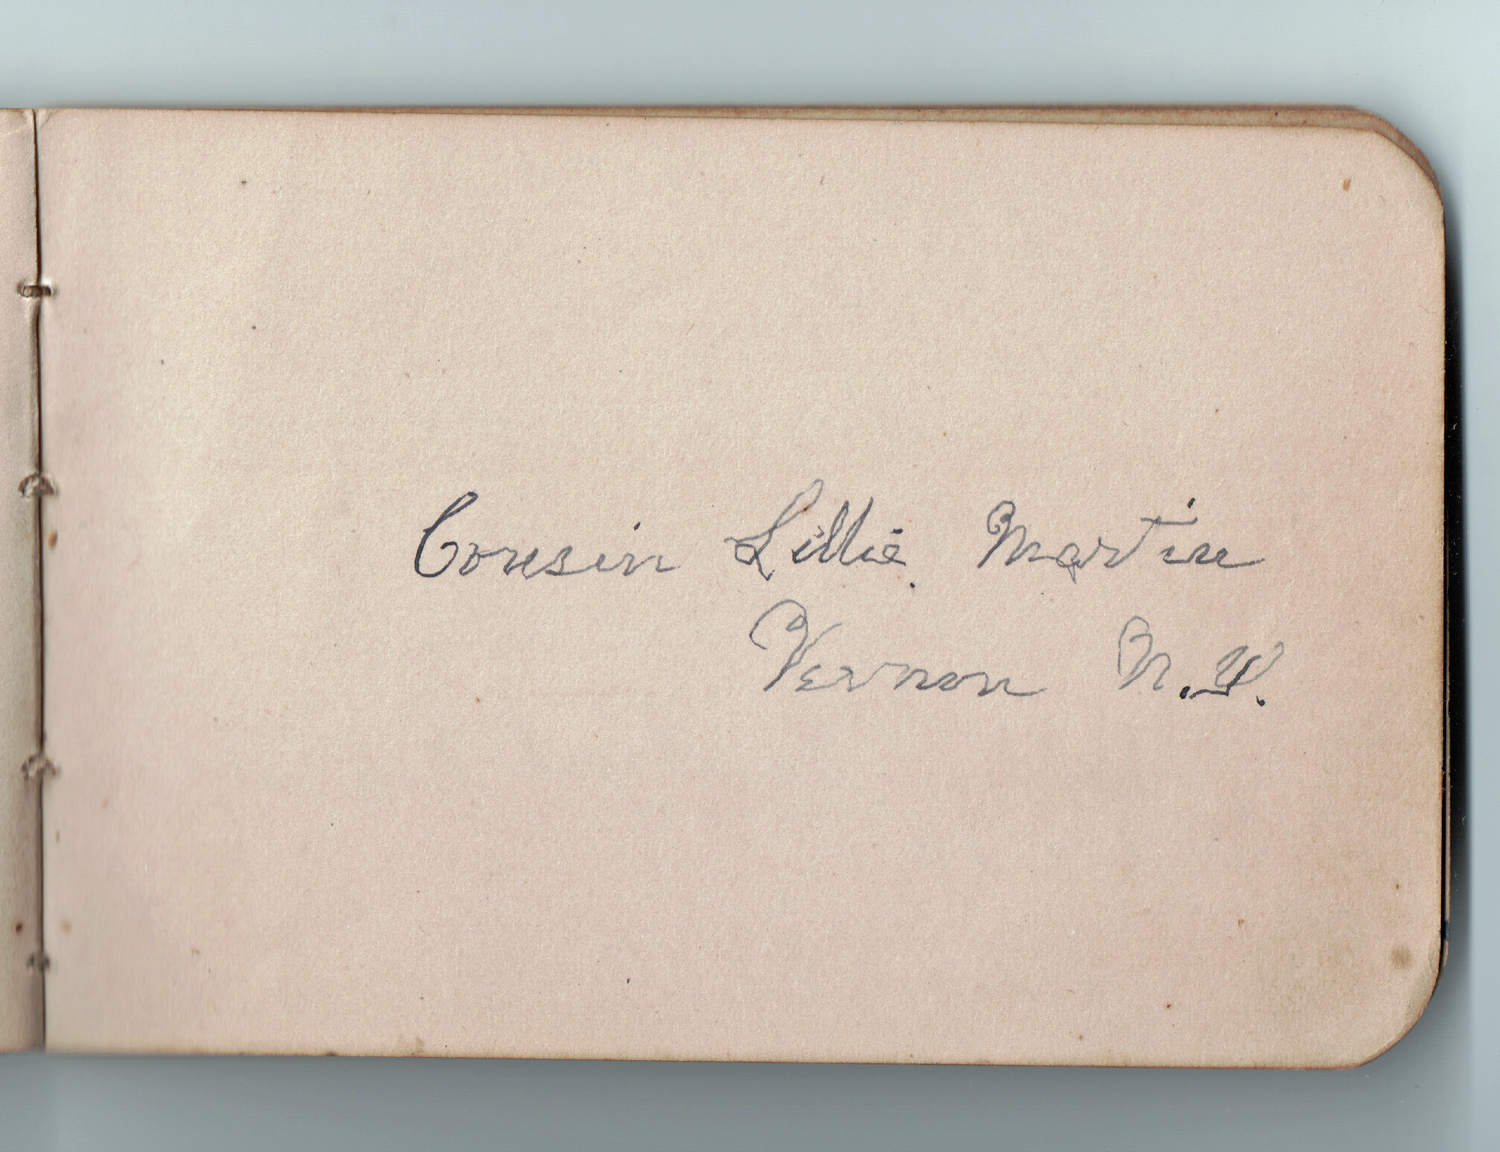 Cousin Lillie Martin
Vernon N.Y.